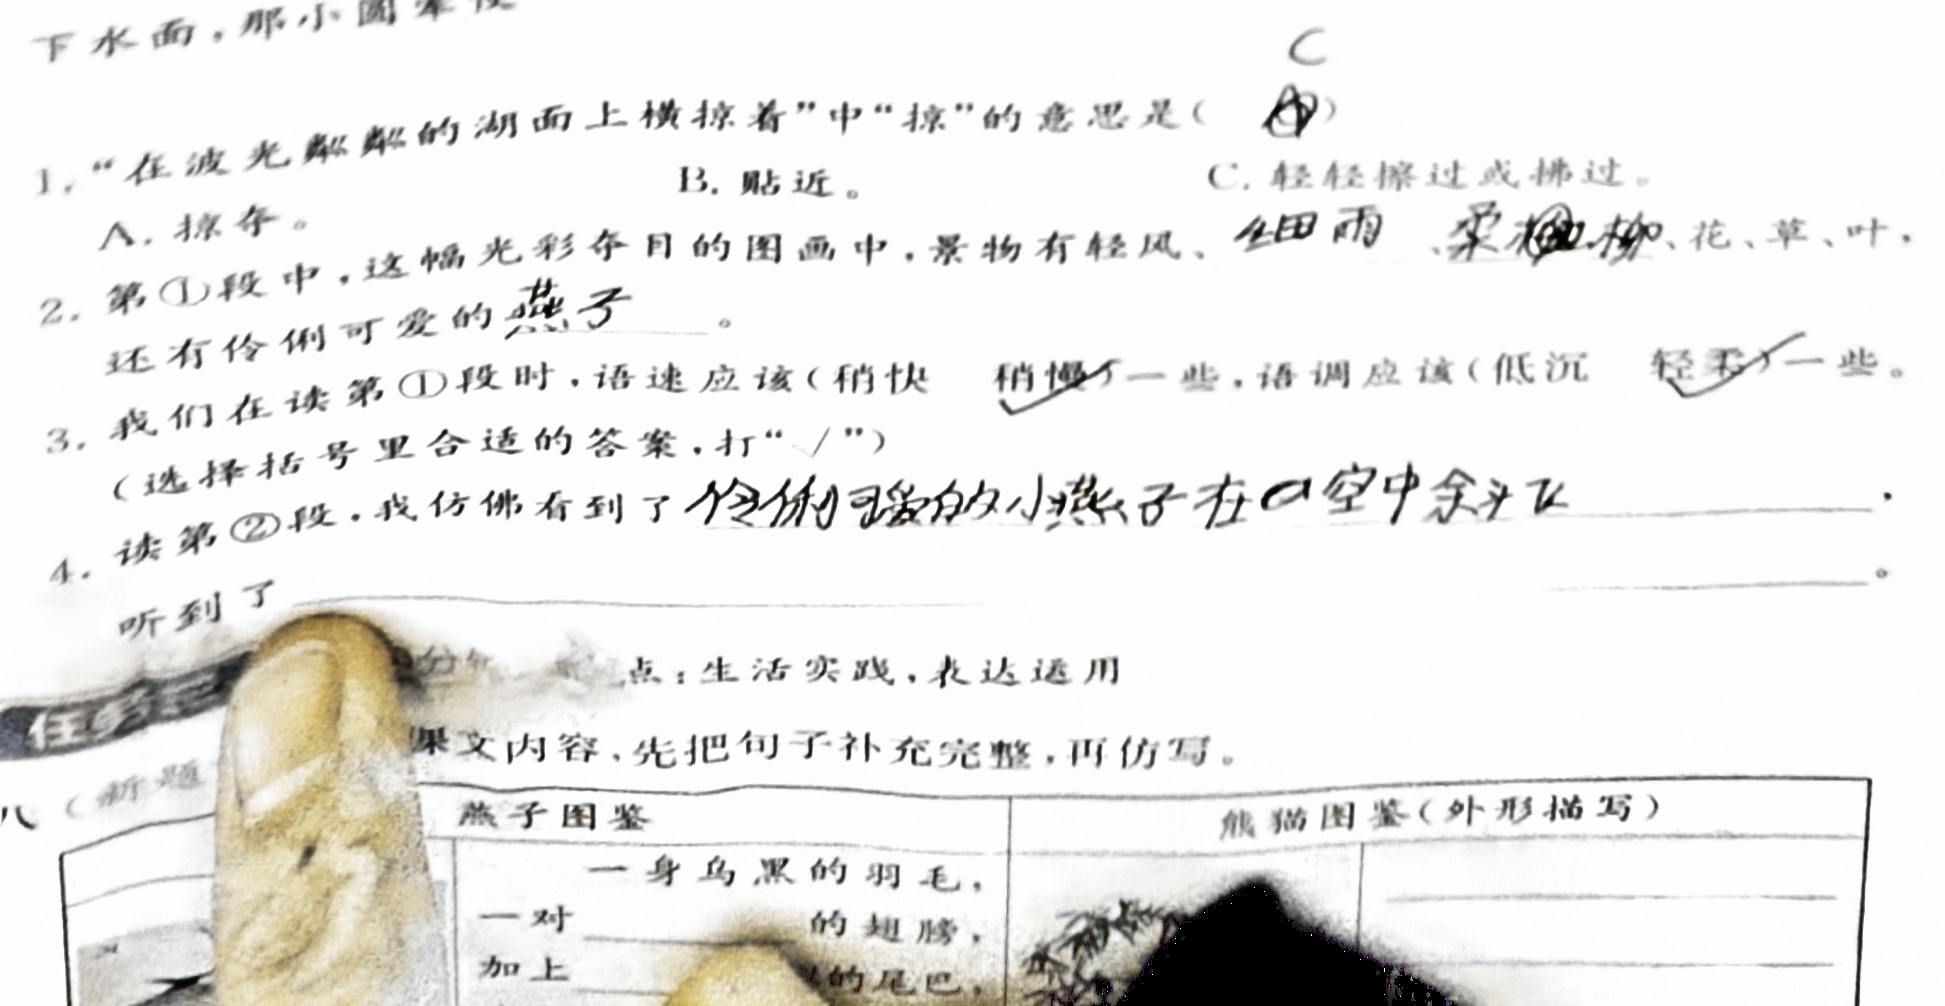 下水面，那小圆晕便
C
1. “在波光粼粼的湖面上横掠着”中“掠”的意思是（ ）
A. 掠夺。 B. 贴近。 C. 轻轻擦过或拂过。
2. 第①段中，这幅光彩夺目的图画中，景物有轻风、细雨、柔柳、花、草、叶，
还有伶俐可爱的燕子。
3. 我们在读第①段时，语速应该（稍快 稍慢√）一些，语调应该（低沉 轻柔√）一些。
（选择括号里合适的答案，打“√”）
4. 读第②段，我仿佛看到了伶俐可爱的小燕子在a空中余斗飞，
听到了。
点：生活实践，表达运用
八（新题 课文内容，先把句子补充完整，再仿写。
燕子图鉴 熊猫图鉴（外形描写）
一身乌黑的羽毛，
一对 的翅膀，
加上 的尾巴，